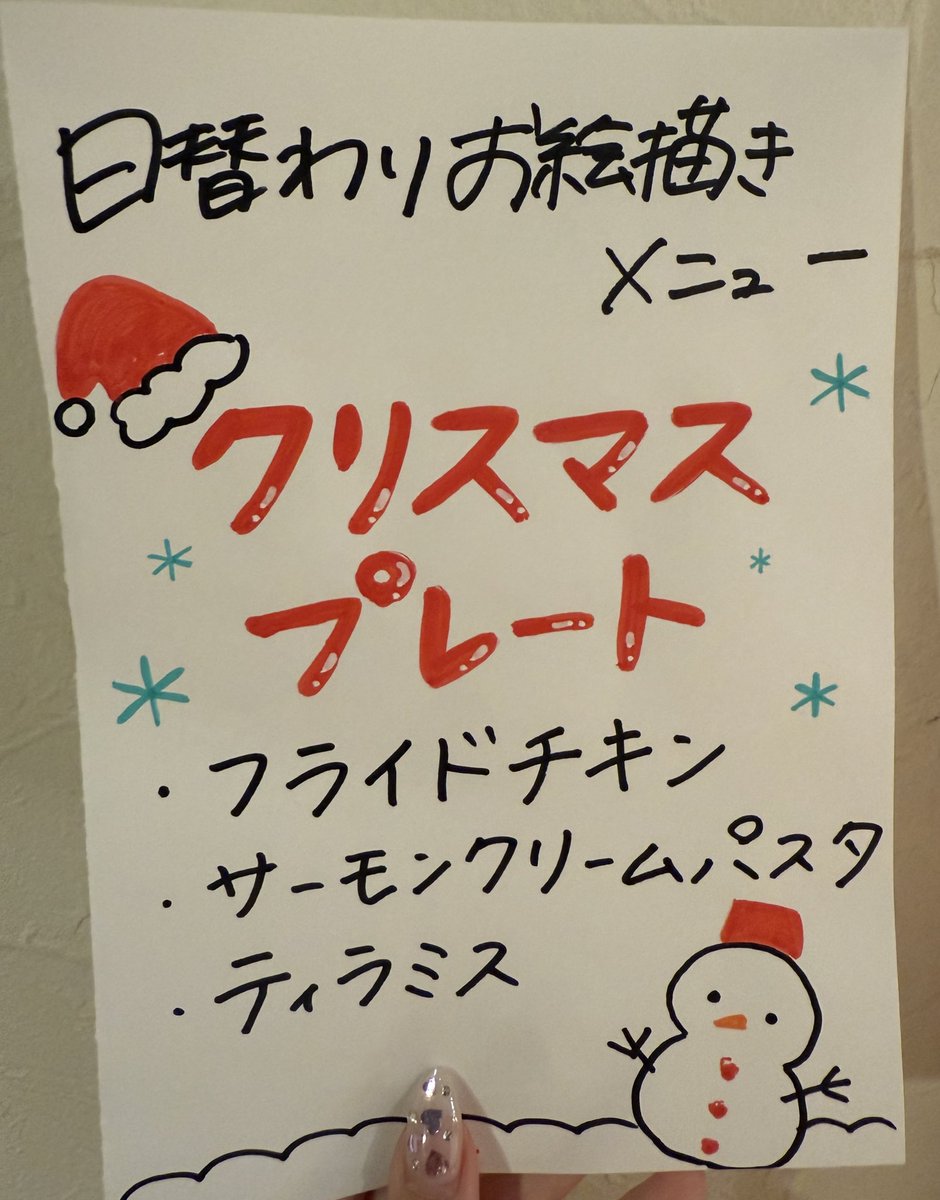 日替わりお絵描き
メニュー
クリスマス
プレート
・フライドチキン
・サーモンクリームパスタ
・ティラミス